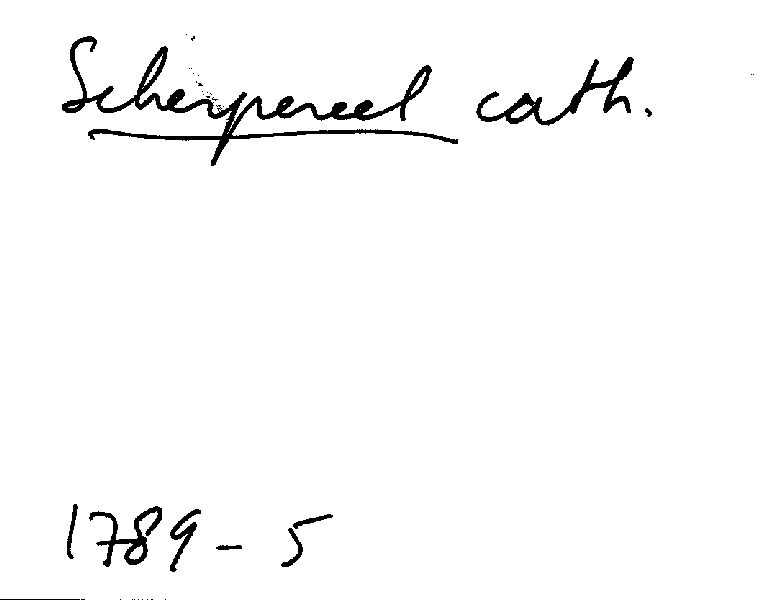 Scherpereel cath.
1789 - 5